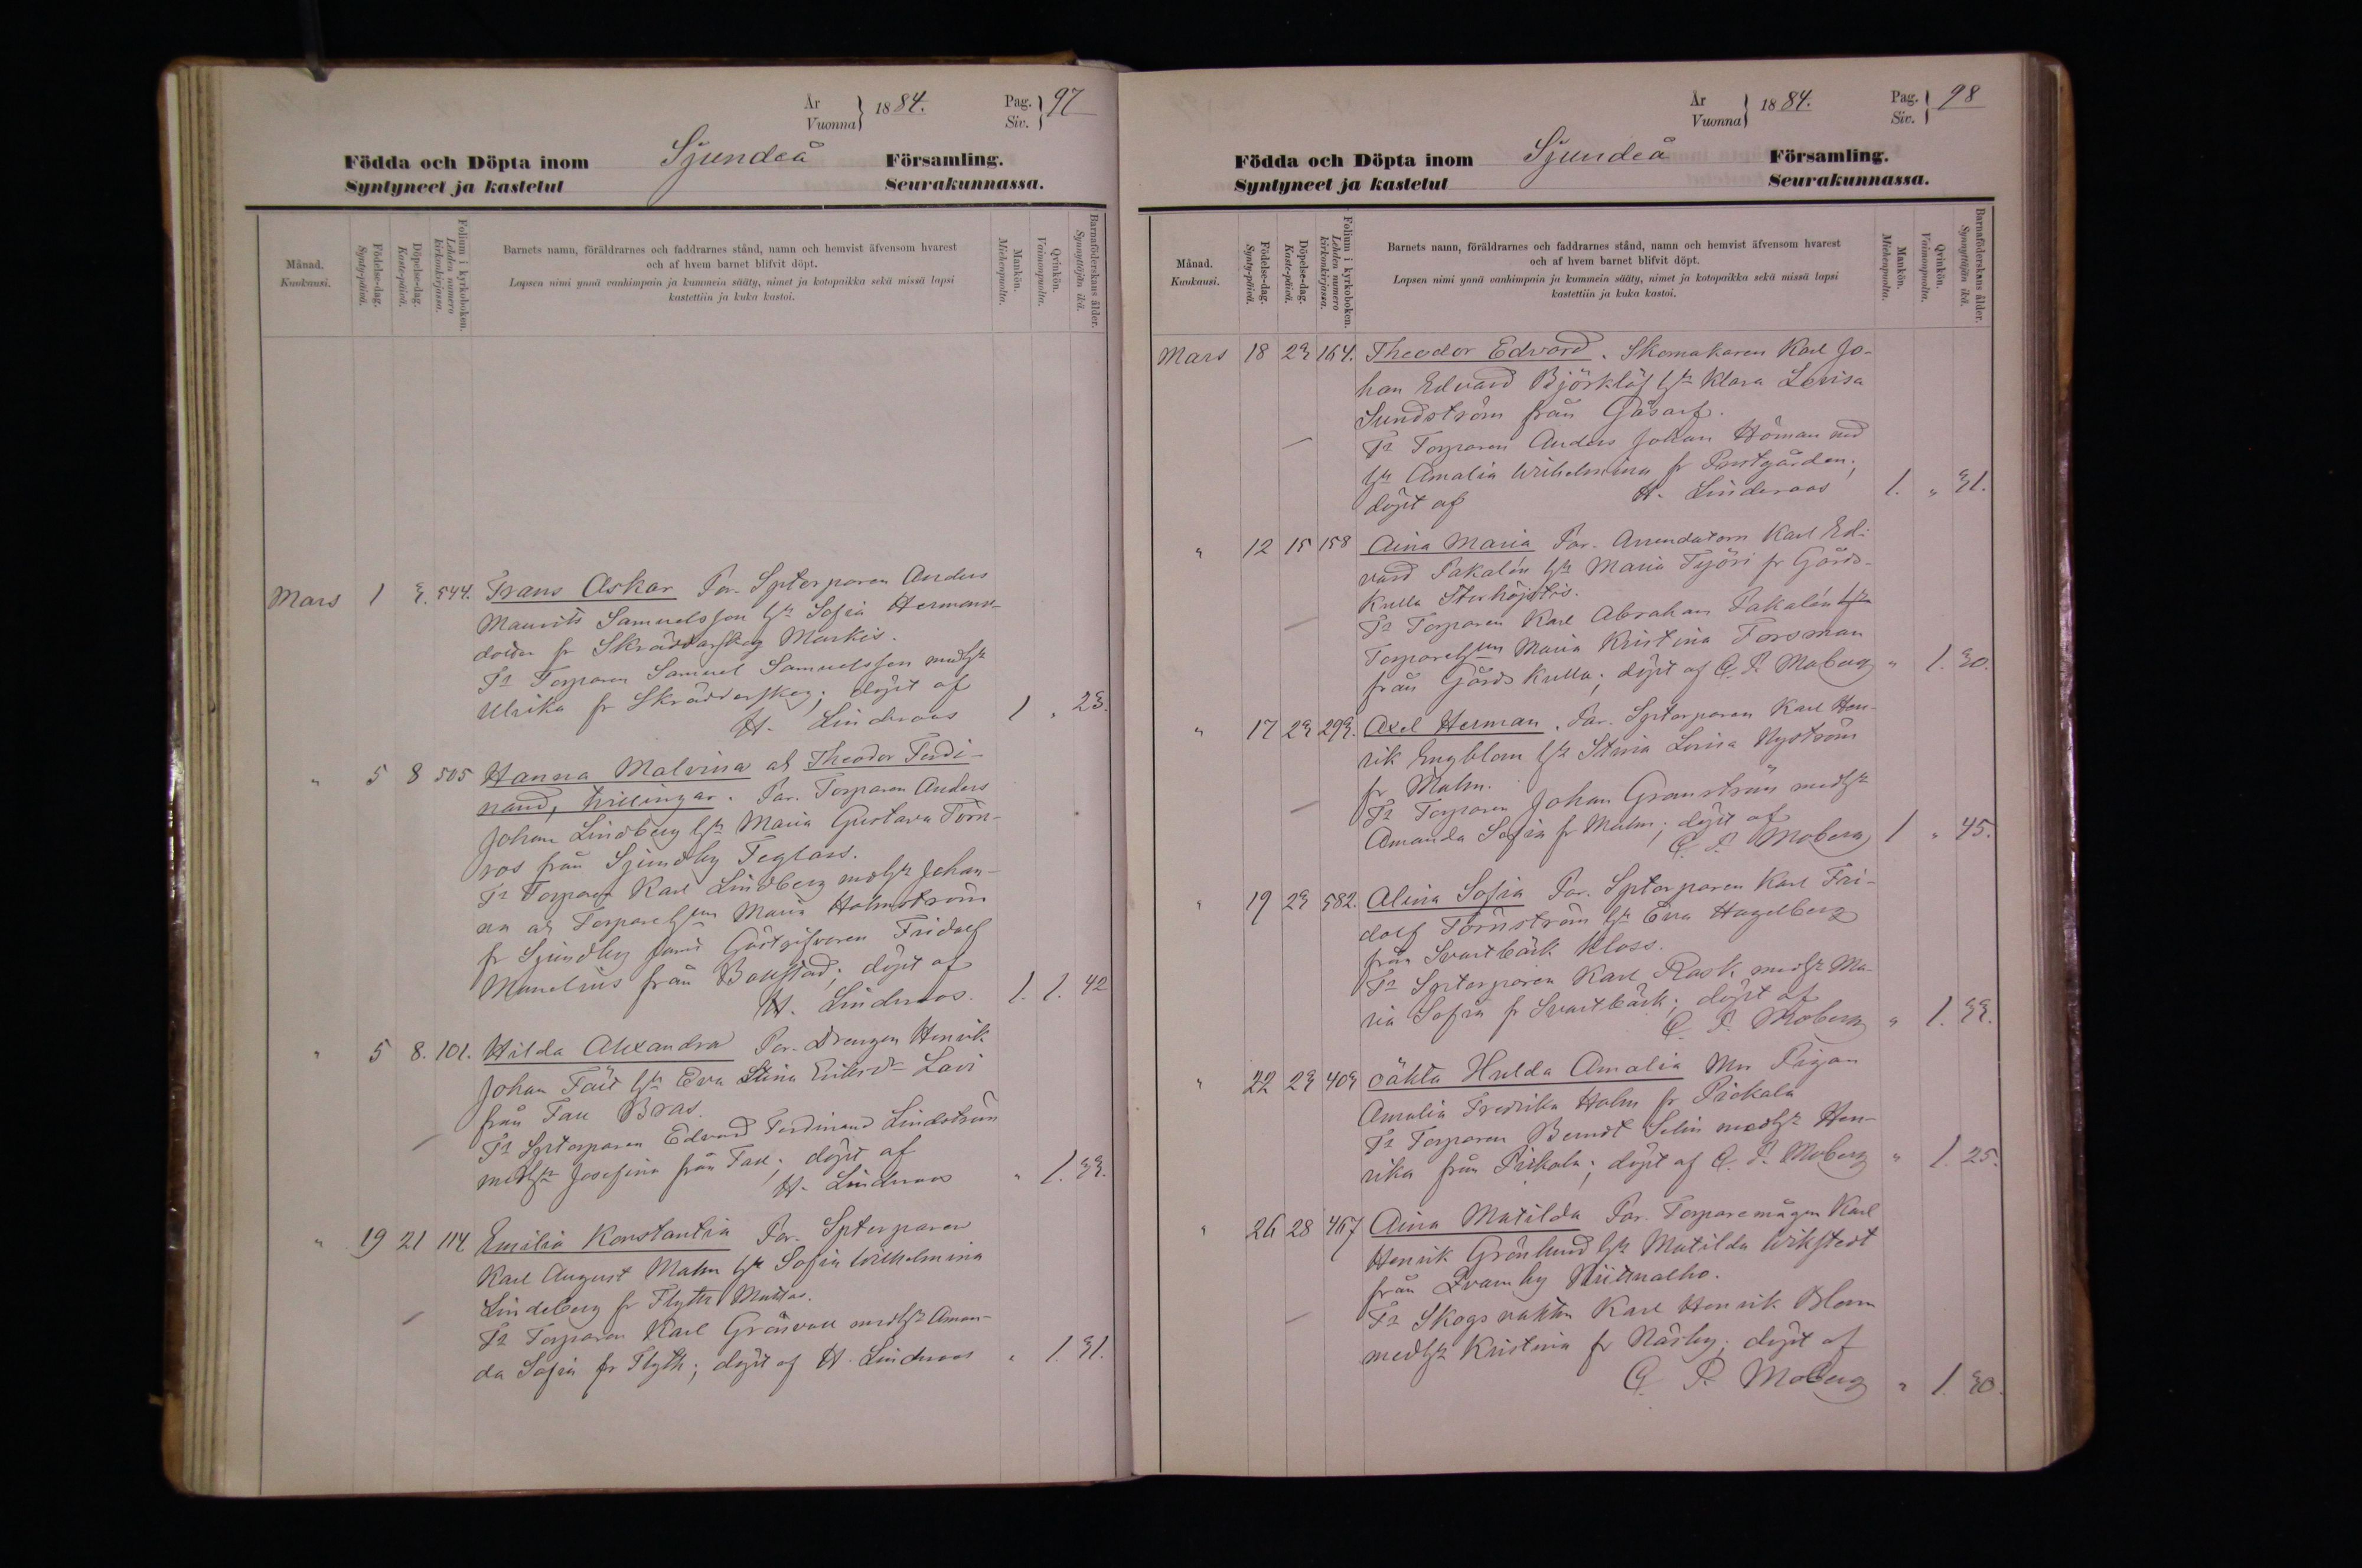 År
Vuonna } 1884. Pag.
Siv. } 97
Födda och Döpta inom Sjundeå Församling.
Syntyneet ja kastetut Seurakunnassa.
Månad.
Kuukausi.
Födelse-dag.
Synty-päivä.
Döpelse-dag.
Kaste-päivä.
Folium i kyrkoboken.
Lehden numero
kirkonkirjassa.
Barnets namn, föräldrarnes och faddrarnes stånd, namn och hemvist äfvensom hvarest
och af hvem barnet blifvit döpt.
Lapsen nimi ynnä vanhimpain ja kummein sääty, nimet ja kotopaikka sekä missä lapsi
kastettiin ja kuka kastoi.
Mankön.
Miehenpuolta.
Qvinkön.
Vaimonpuolta.
Barnaföderskans ålder.
Synnyttäjän ikä.
Mars 1 3. 544. Frans Oskar Par. Sptorparen Anders
Maurits Samuelsson h:u Sofia Hermans-
doter fr Skräddarskog Markis.
Fr Torparen Samuel Samuelsson med h:u
Ulrika fr Skräddarskog; döpt af
H. Linderoos 1 „ 23.
„ 5 8 505 Hanna Malvina ah Theodor Ferdi-
nand, tvillingar. Par. Torparen Anders
Johan Lindberg h:u Maria Gustava Törn-
ros från Sjundby Teglars.
Fr Torparen Karl Lindberg med h:u Johan-
na ah Torpareh:un Maria Holmström
fr Sjundby samt Gästgifveren Fridolf
Munelius från Bollstad; döpt af
H. Linderoos. 1. 1. 42
„ 5 8. 101. Hilda Alexandra Par. Drengen Henrik
Johan Fält h:u Eva Stina Eriksd:r Lavi
från Fall Bras.
Fr Sptorparen Edvard Ferdinand Lindström
med h:u Josefina från Fall; döpt af
H. Linderoos „ 1. 33.
„ 19 21 114 Emilia Konstantia Par. Sptorparen
Karl August Malm h:u Sofia Wilhelmina
Lindeberg fr Flyth Mattas.
Fr Torparen Karl Grönvall med h:u Aman-
da Sofia fr Flyth; döpt af H. Linderoos „ 1. 31.
År
Vuonna } 1884. Pag.
Siv. } 98
Födda och Döpta inom Sjundeå Församling.
Syntyneet ja kastetut Seurakunnassa.
Månad.
Kuukausi.
Födelse-dag.
Synty-päivä.
Döpelse-dag.
Kaste-päivä.
Folium i kyrkoboken.
Lehden numero
kirkonkirjassa.
Barnets namn, föräldrarnes och faddrarnes stånd, namn och hemvist äfvensom hvarest
och af hvem barnet blifvit döpt.
Lapsen nimi ynnä vanhimpain ja kummein sääty, nimet ja kotopaikka sekä missä lapsi
kastettiin ja kuka kastoi.
Mankön.
Miehenpuolta.
Qvinkön.
Vaimonpuolta.
Barnaföderskans ålder.
Synnyttäjän ikä.
Mars 18 23 164. Theodor Edvard. Skomakaren Karl Jo-
han Edvard Björklöf h:u Klara Lovisa
Sundström från Gåsarf.
Fr Torparen Anders Johan Höman med
h:u Amalia Wilhelmina fr Prestgården;
döpt af H. Linderoos 1. „ 31.
„ 12 15 158 Aina Maria Par. Arrendatorn Karl Ed-
vard Pakalén h:u Maria Fyöri fr Gårds-
kulla Storhöjdtis.
Fr Torparen Karl Abraham Pakalén
Torpareh:un Maria Kristina Forsman
från Gårdskulla; döpt af C. P. Moberg „ 1. 30.
„ 17 23 293. Axel Herman. Par. Sptorparen Karl Hen-
rik Engblom h:u Stina Lovisa Nyström
fr Malm.
Fr Torparen Johan Granström med h:u
Amanda Sofia fr Malm; döpt af
C. P. Moberg 1 „ 45.
„ 19 23 582. Alina Sofia Par. Sptorparen Karl Fri-
dolf Törnström h:u Eva Hagelberg
från Svartbäck Kloss.
Fr Sptorparen Karl Rask med h:u Ma-
ria Sofia fr Svartbäck; döpt af
C. P. Moberg „ 1. 33.
„ 22 23 403 oäkta Hulda Amalia Mn Pigan
Amalia Fredrika Holm fr Pickala
Fr Torparen Berndt Selin med h:u Hen-
rika från Pickala; döpt af C. P. Moberg „ 1. 25.
„ 26 28 467 Aina Matilda Par. Torparemågen Karl
Henrik Grönlund h:u Matilda Wikstedt
från Kvarnby Niittualho.
Fr Skogsvakten Karl Henrik Blom
med h:u Kristina fr Näsby; döpt af
C. P. Moberg „ 1. 30.